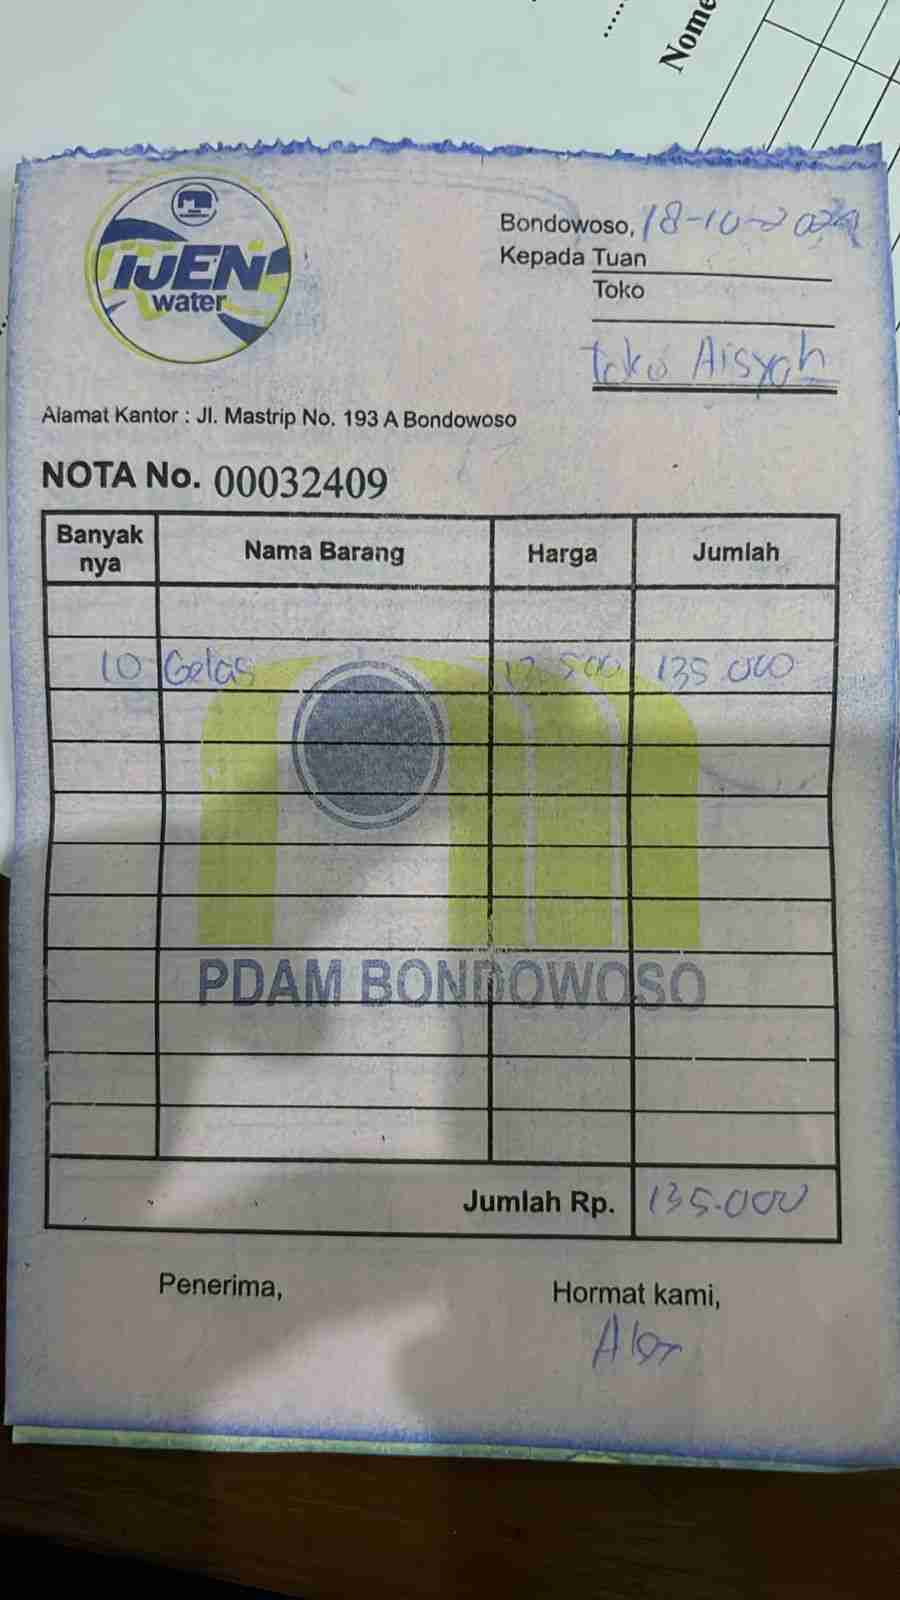 Nome
IJEN
water
Bondowoso, 18-10-2024
Kepada Tuan
Toko
Toko Aisyah
Alamat Kantor : Jl. Mastrip No. 193 A Bondowoso
NOTA No. 00032409
Banyak nya Nama Barang Harga Jumlah
10 Gelas 13.500 135.000
PDAM BONDOWOSO
Jumlah Rp. 135.000
Penerima, Hormat kami,